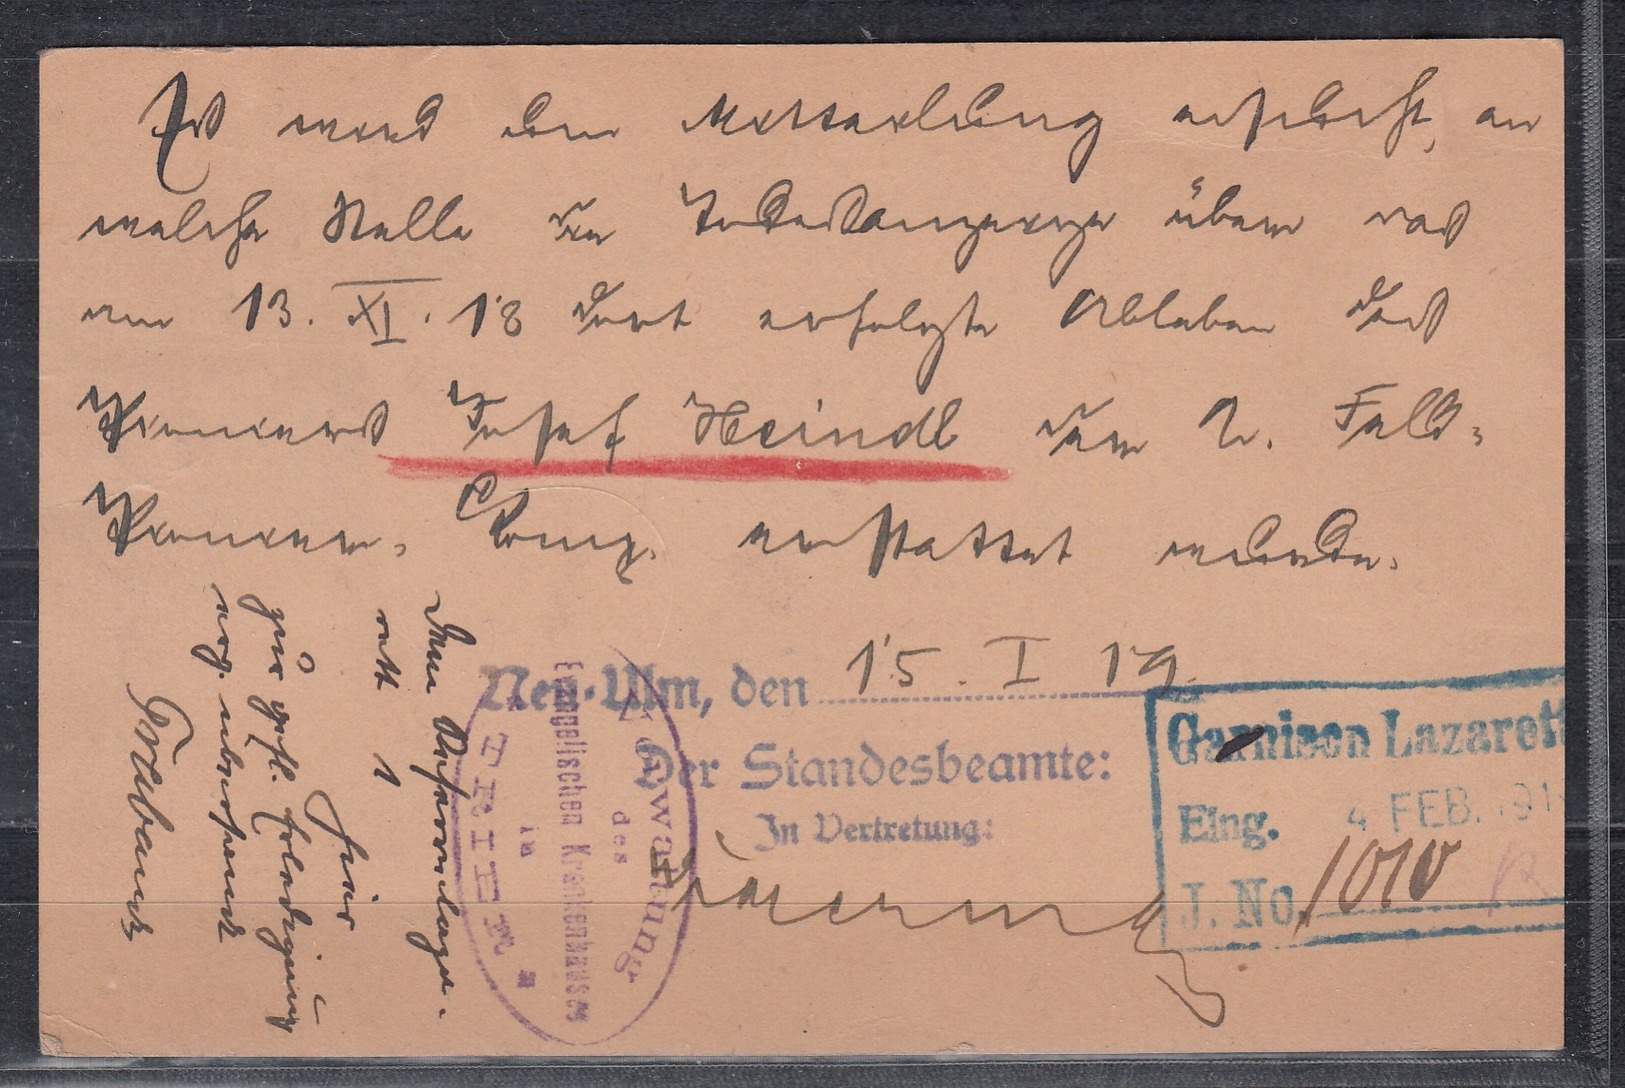 Es wird um Mitteilung ersucht, an
welche Stelle die Todesanzeige über das
am 13. XI. 18 dort erfolgte Ableben des
Pioniers Josef Heindl der 2. Feld-
Pionier-Comp. erstattet wurde.
Neu-Ulm, den 15. I 19.
Der Standesbeamte:
In Vertretung:
Verwaltung
des
Evangelischen Krankenhauses
in
TRIER
Garnison Lazarett
Eing. 4 FEB. 191
J. No. 1010
Dem
1
hier
zur gefl. Erledigung